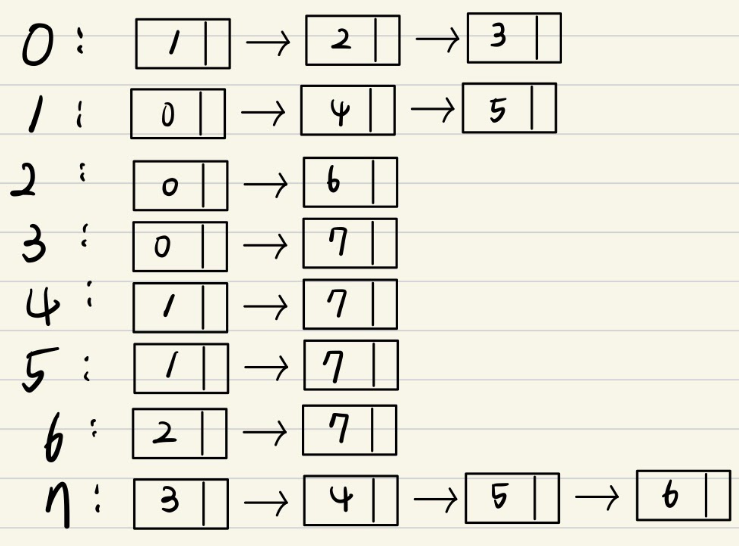 0: 1 → 2 → 3
1: 0 → 4 → 5
2: 0 → 6
3: 0 → 7
4: 1 → 7
5: 1 → 7
6: 2 → 7
7: 3 → 4 → 5 → 6